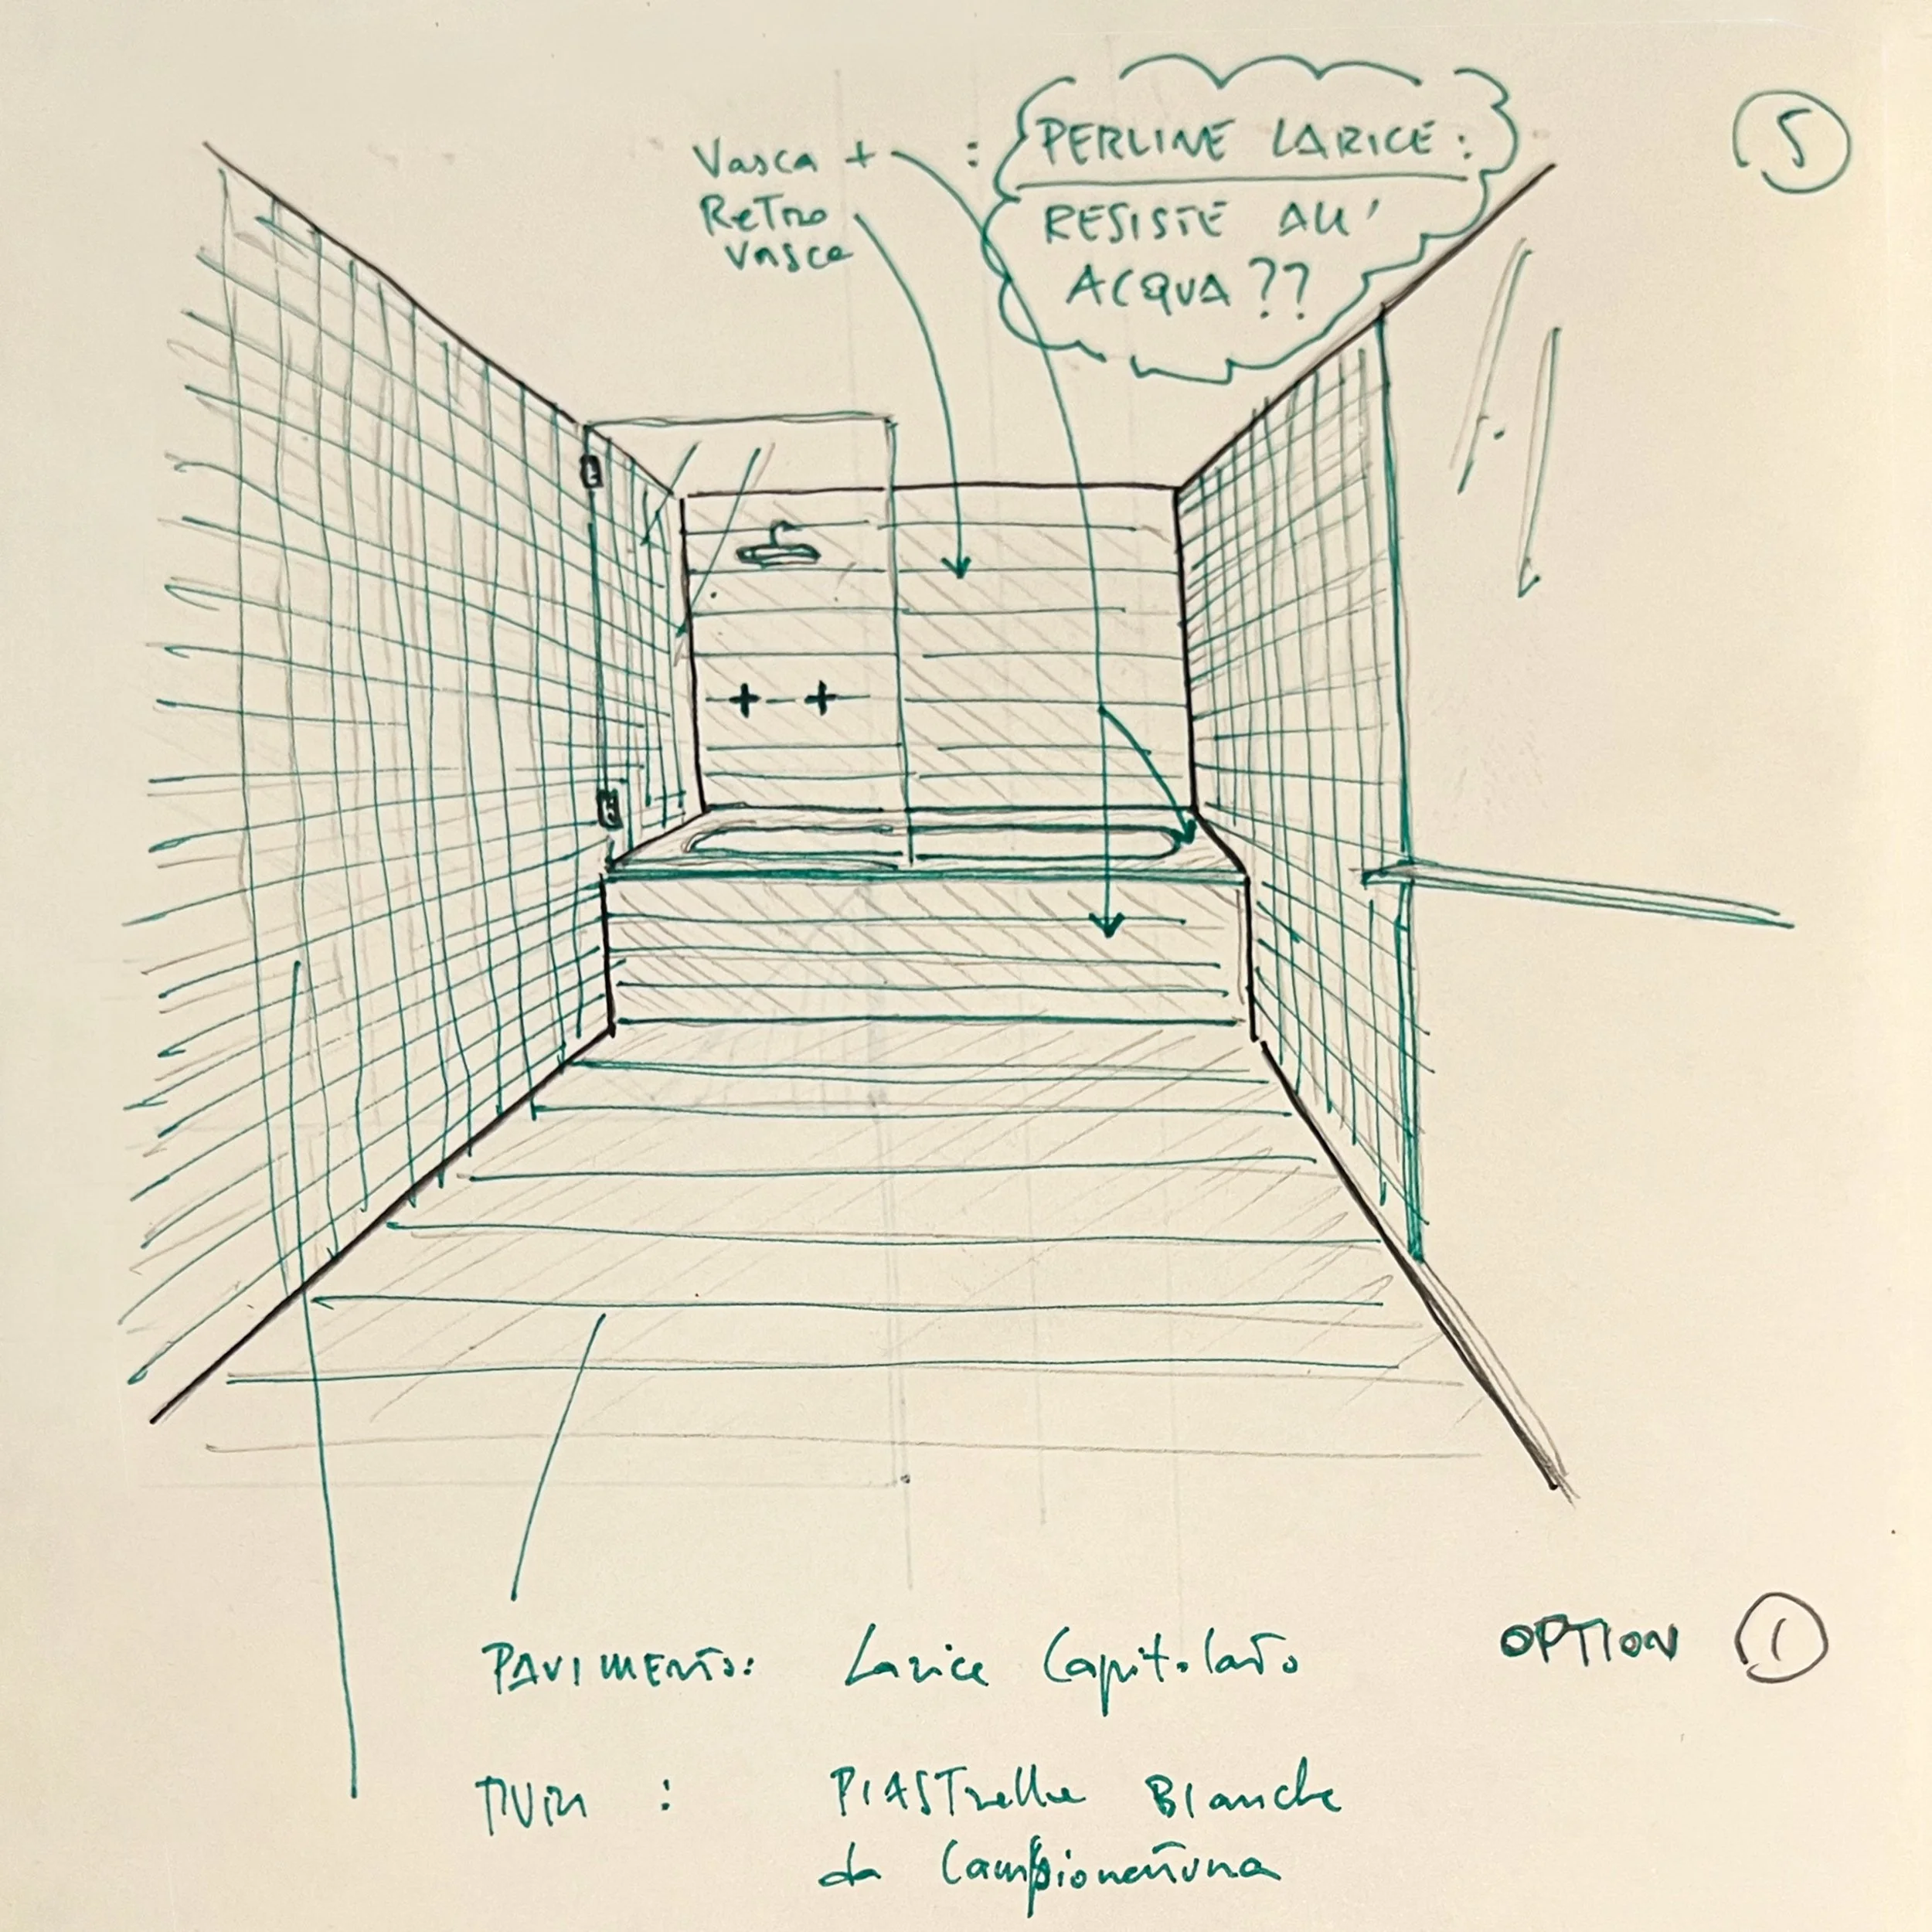 5
Vasca + : PERLINE LARICE :
Retro RESISTE ALL'
Vasca ACQUA ??
PAVIMENTO: Larice Capitolato
OPTION 1
MURI : PIASTrelle BIanche
da Campionatura